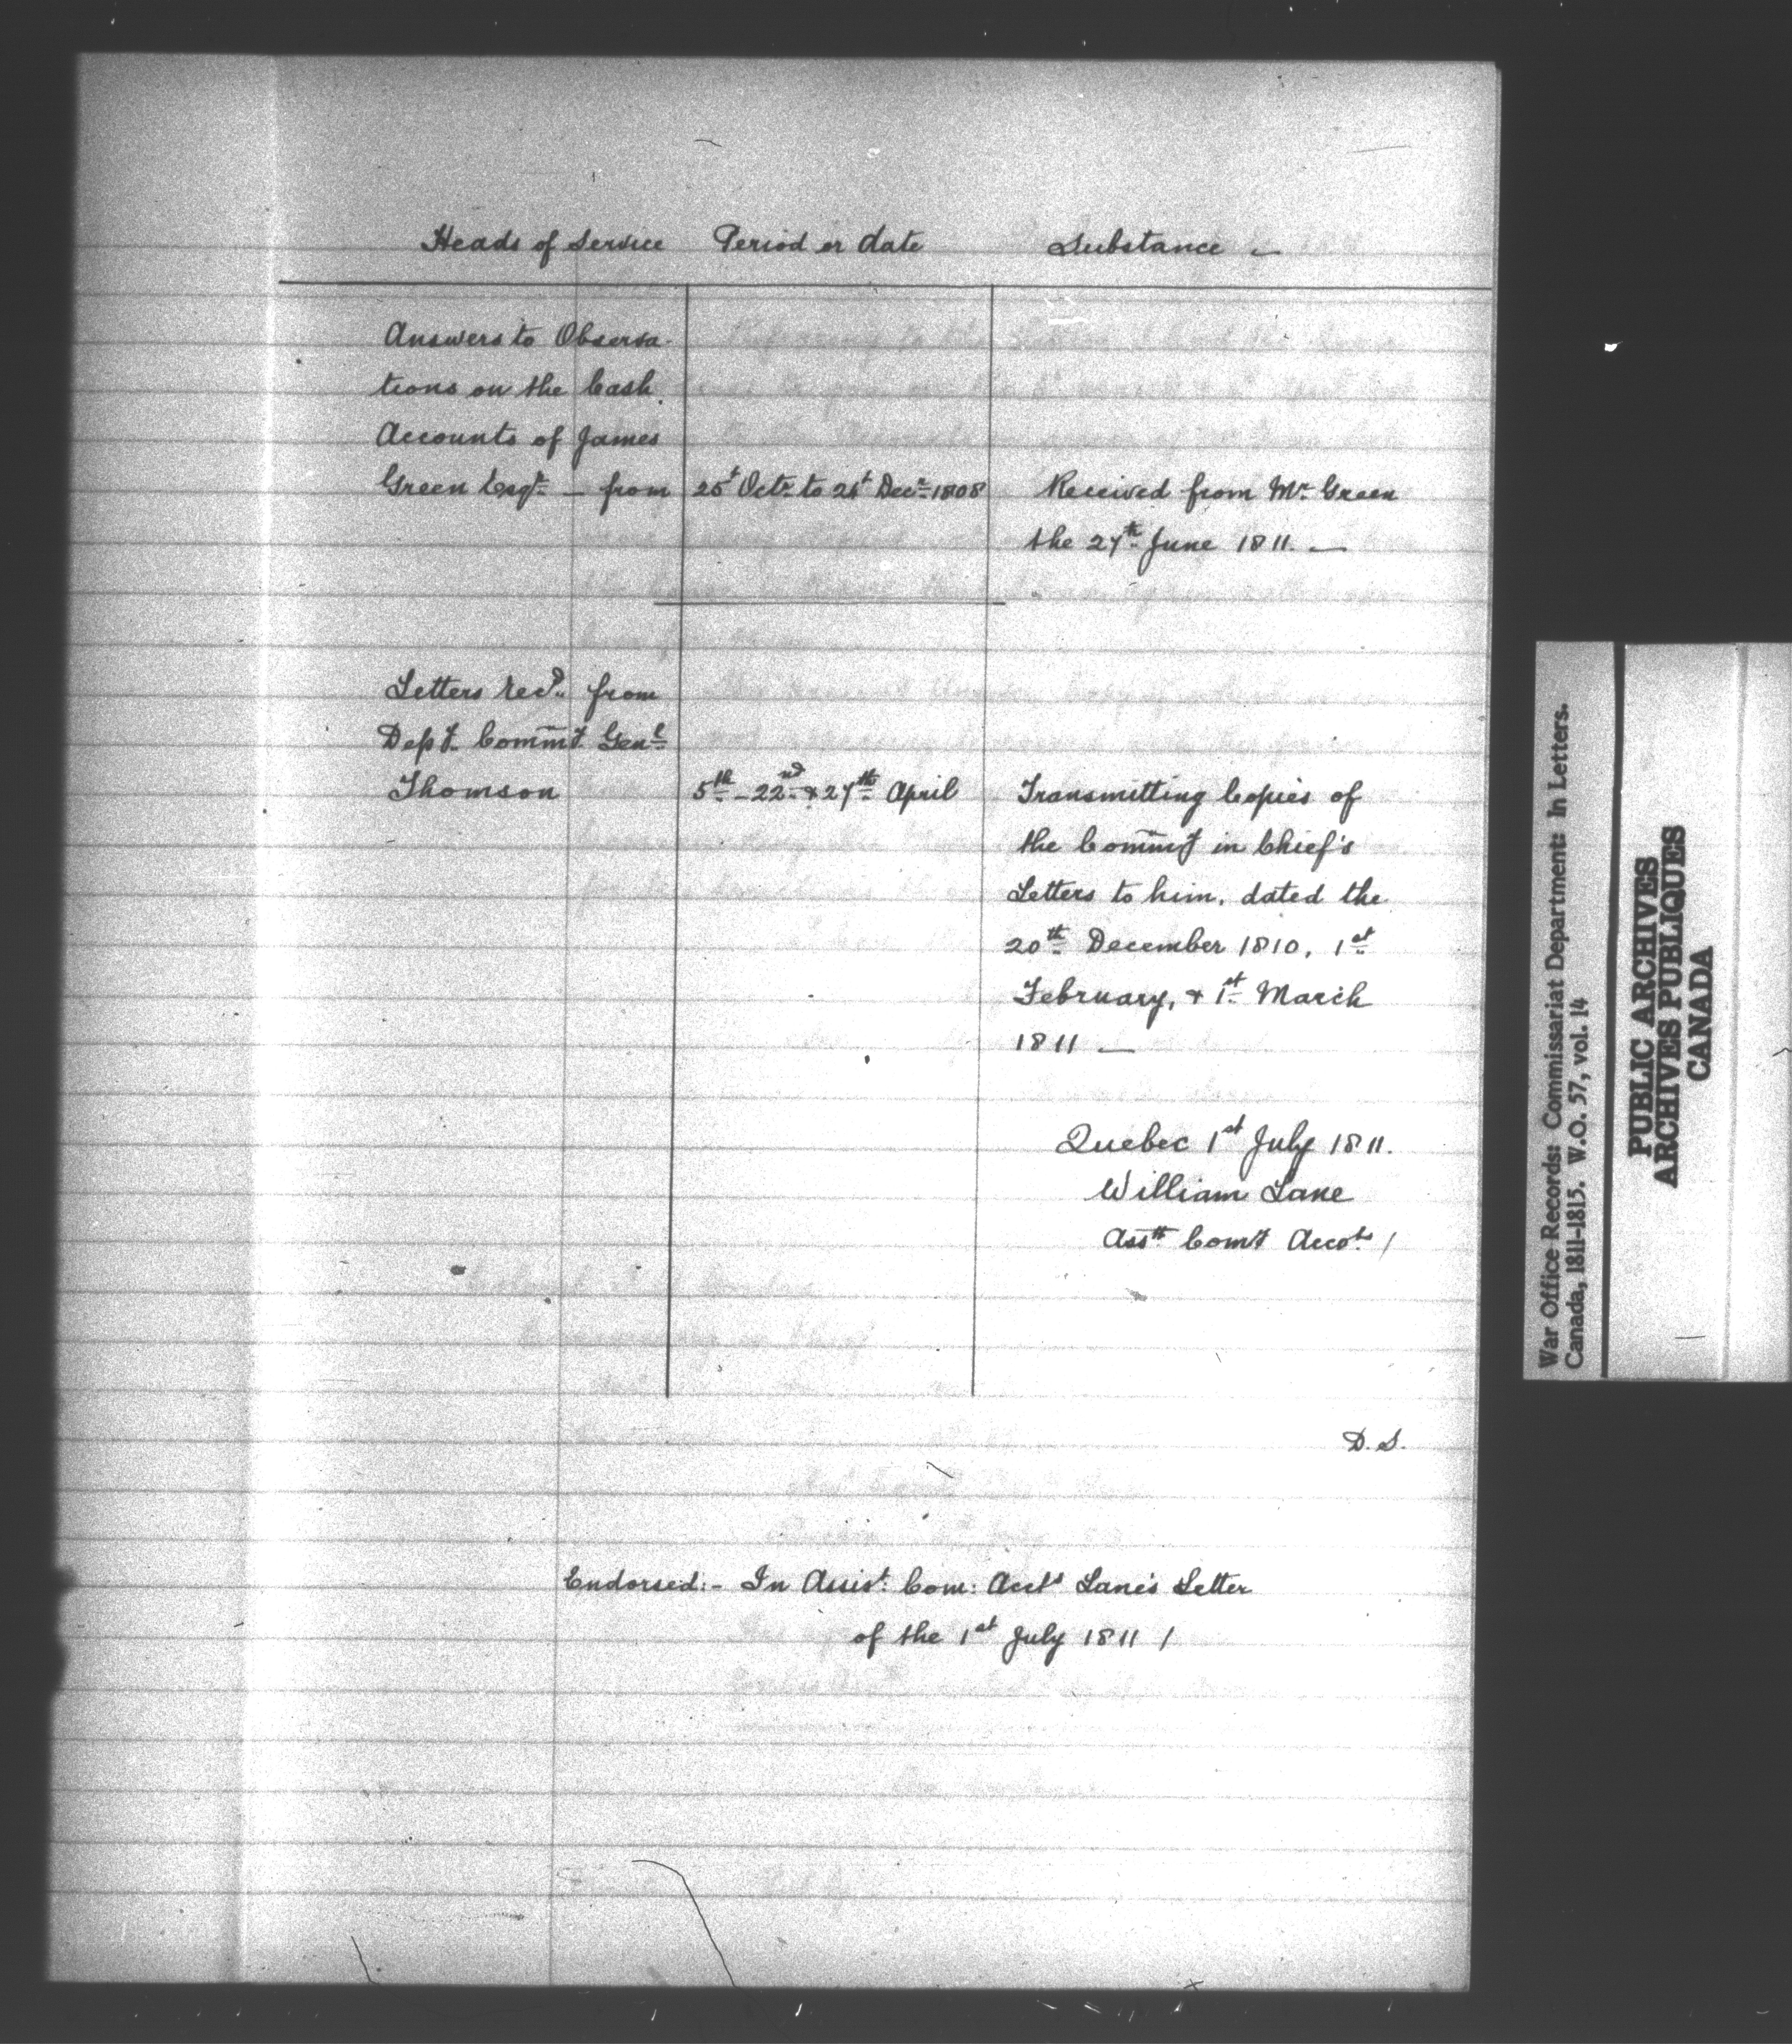 Heads of Service Period or date Substance —
Answers to Observa-
tions on the Cash
Accounts of James
Green Esqr. — from 25t Octr. to 24t Decr. 1808 Received from Mr. Green
the 27th June 1811. —
Letters recd. from
Depy. Commy Genl.
Thomson 5th. — 22nd. & 27th. April Transmitting Copies of
the Commy in Chief's
Letters to him, dated the
20th. December 1810, 1st.
February, & 1st. March
1811 —
Quebec 1st July 1811.
William Lane
Asst. Comy Accots /
D. S.
Endorsed:- In Assist. Com: Accts Lane's Letter
of the 1st July 1811 /
War Office Records: Commissariat Department: In Letters.
Canada, 1811-1815. W.O. 57, vol. 14
PUBLIC ARCHIVES
ARCHIVES PUBLIQUES
CANADA